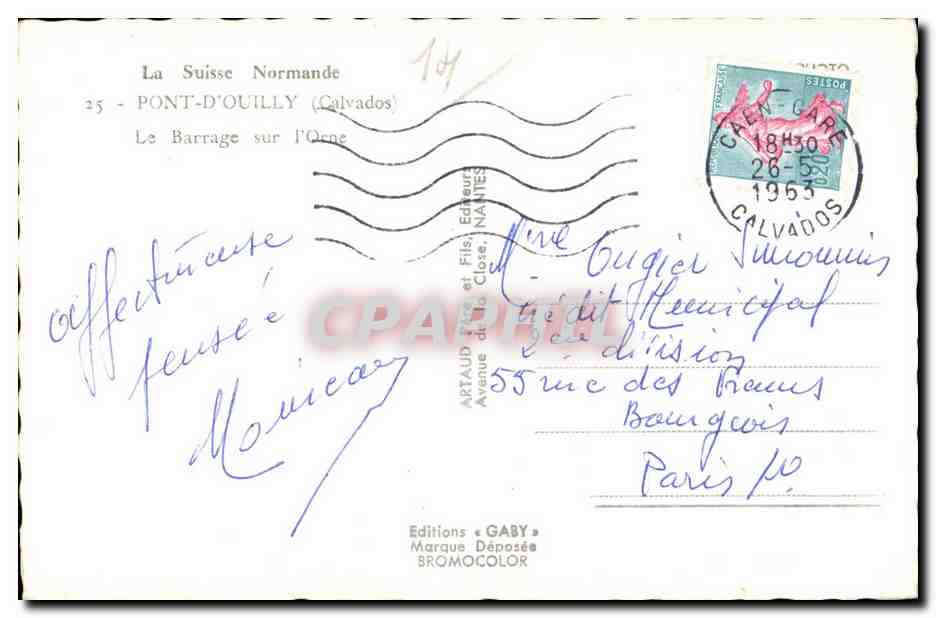 La Suisse Normande
25 - PONT-D'OUILLY (Calvados)
Le Barrage sur l'Orne
FRANÇAISE
POSTES
0,20
CAEN-GARE
18H30
26-5
1963
CALVADOS
Affectueuse
pensée
ARTAUD Père et Fils, Editeurs
Avenue de la Close, NANTES
CPAPHIL
Mme
Crédit Municipal
2ème division
55 rue des Francs
Bourgeois
Paris
Editions « GABY »
Marque Déposée
BROMOCOLOR